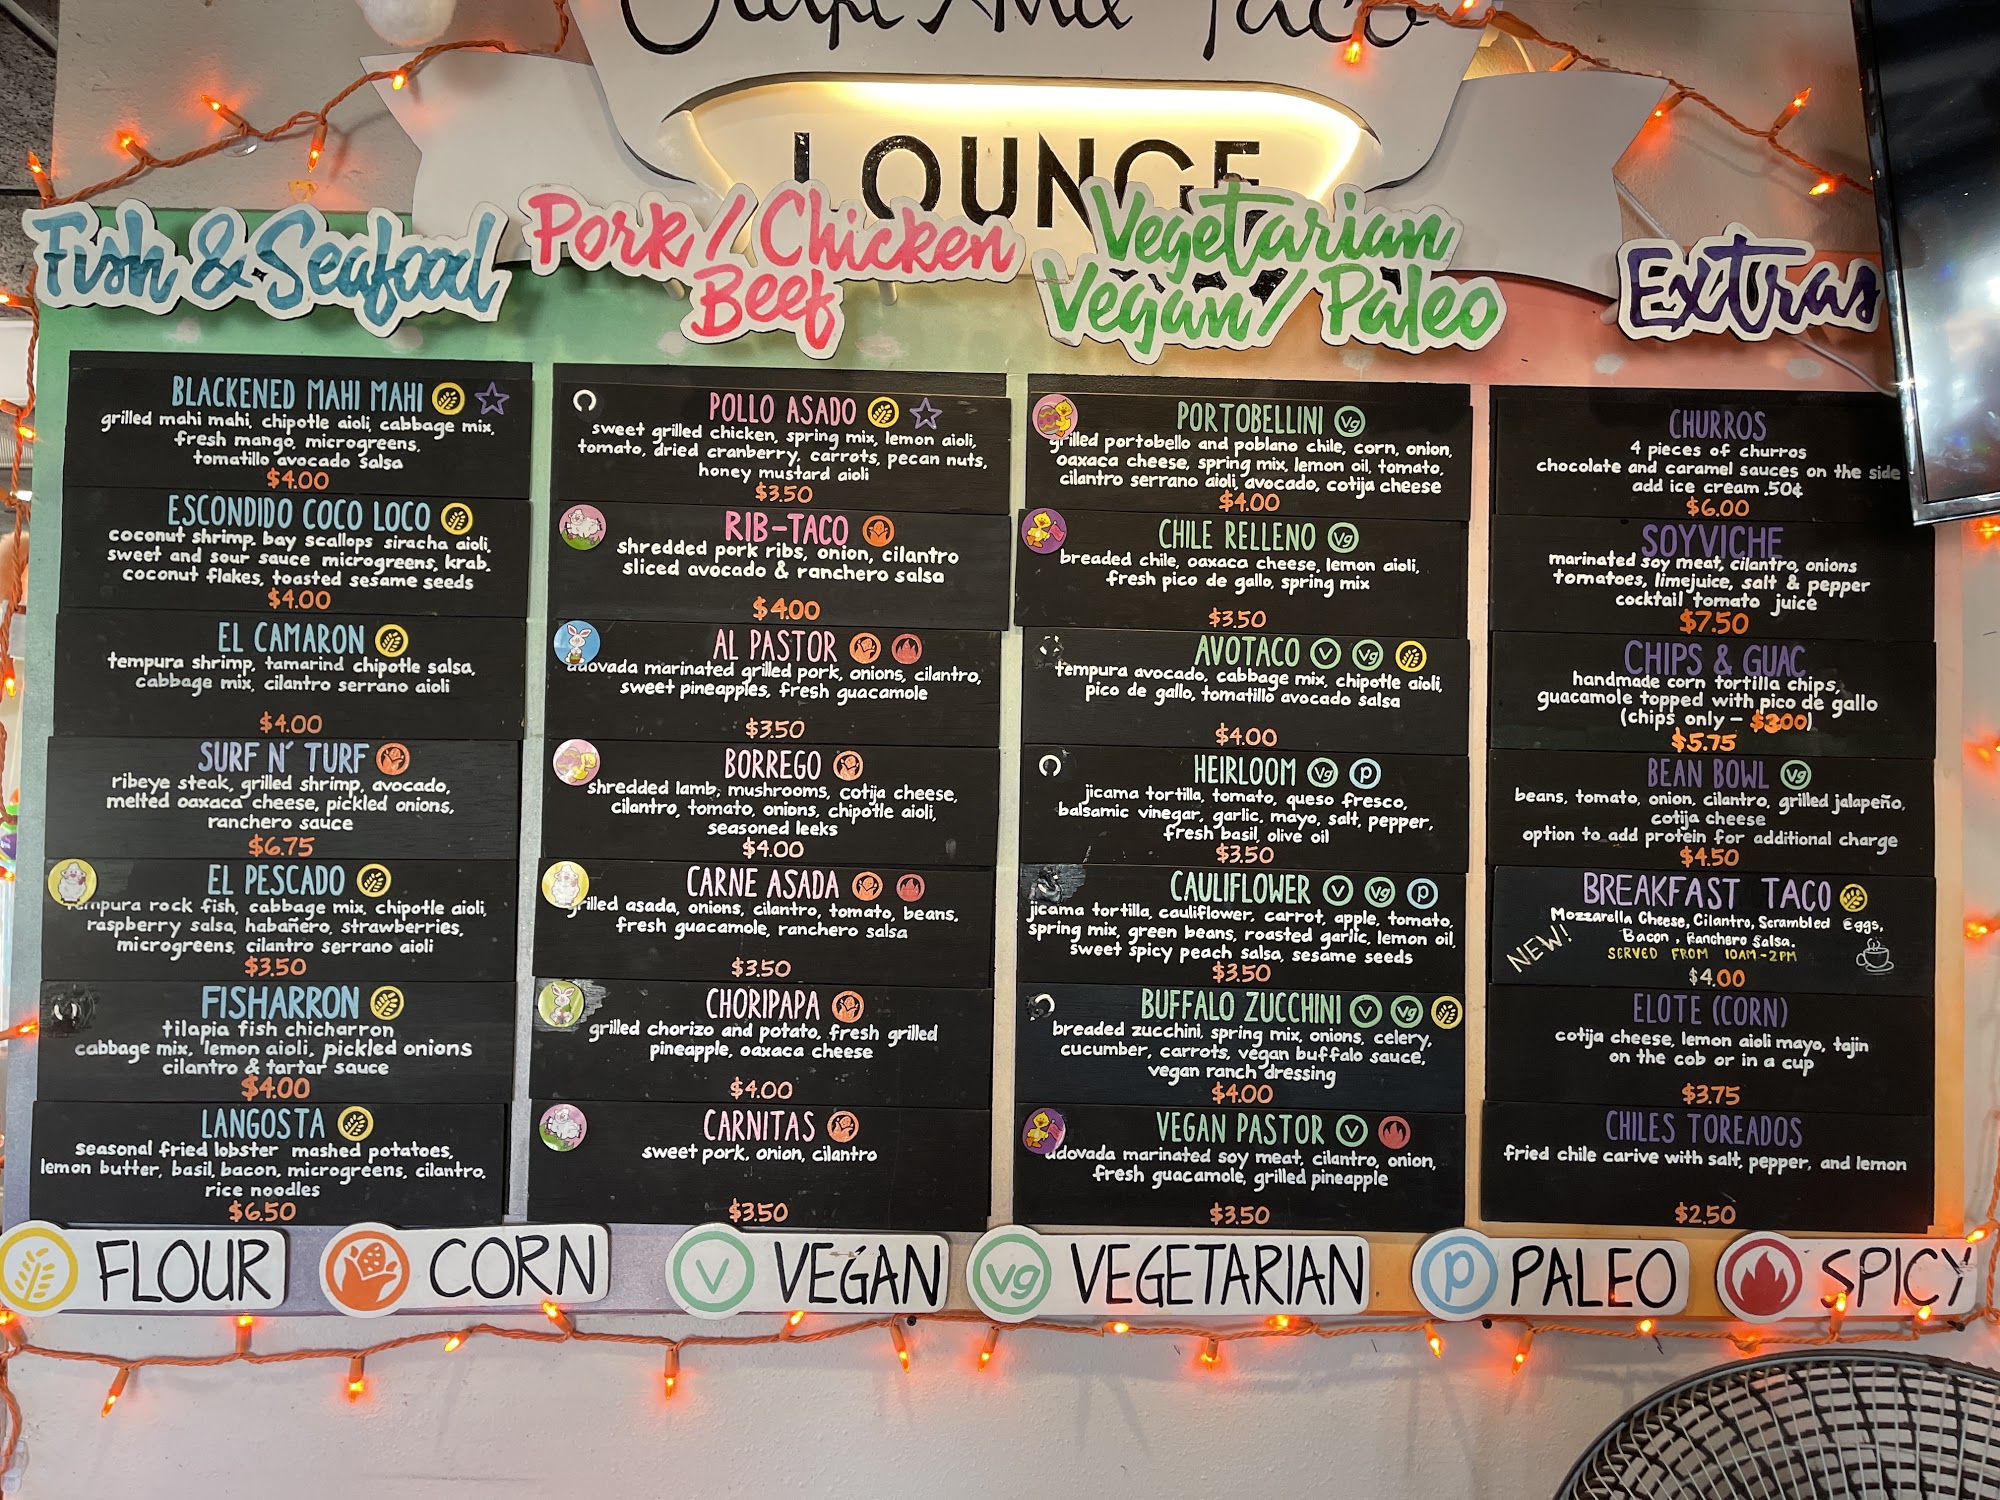 And Taco
LOUNGE
Fish & Seafood
BLACKENED MAHI MAHI
grilled mahi mahi, chipotle aioli, cabbage mix,
fresh mango, microgreens,
tomatillo avocado salsa
$4.00
ESCONDIDO COCO LOCO
coconut shrimp. bay scallops siracha aioli,
sweet and sour sauce microgreens, krab.
coconut flakes, toasted sesame seeds
$4.00
EL CAMARON
tempura shrimp, tamarind chipotle salsa,
cabbage mix, cilantro serrano aioli
$4.00
SURF N' TURF
ribeye steak, grilled shrimp, avocado,
melted oaxaca cheese, pickled onions,
ranchero sauce
$6.75
EL PESCADO
tempura rock fish, cabbage mix, chipotle aioli,
raspberry salsa, habañero, strawberries,
microgreens, cilantro serrano aioli
$3.50
FISHARRON
tilapia fish chicharron
cabbage mix, lemon aioli, pickled onions
cilantro & tartar sauce
$4.00
LANGOSTA
seasonal fried lobster mashed potatoes,
lemon butter, basil, bacon, microgreens, cilantro.
rice noodles
$6.50
Pork / Chicken
Beef
POLLO ASADO
sweet grilled chicken, spring mix, lemon aioli,
tomato, dried cranberry, carrots, pecan nuts,
honey mustard aioli
$3.50
RIB-TACO
shredded pork ribs, onion, cilantro
sliced avocado & ranchero salsa
$4.00
AL PASTOR
adovada marinated grilled pork, onions, cilantro,
sweet pineapples, fresh guacamole
$3.50
BORREGO
shredded lamb, mushrooms, cotija cheese,
cilantro, tomato, onions, chipotle aioli,
seasoned leeks
$4.00
CARNE ASADA
grilled asada, onions, cilantro, tomato, beans.
fresh guacamole, ranchero salsa
$3.50
CHORIPAPA
grilled chorizo and potato, fresh grilled
pineapple, oaxaca cheese
$4.00
CARNITAS
sweet pork, onion, cilantro
$3.50
Vegetarian
Vegan / Paleo
PORTOBELLINI Vg
grilled portobello and poblano chile, corn, onion,
oaxaca cheese, spring mix, lemon oil, tomato,
cilantro serrano aioli, avocado, cotija cheese
$4.00
CHILE RELLENO Vg
breaded chile, oaxaca cheese, lemon aioli,
fresh pico de gallo, spring mix
$3.50
AVOTACO V Vg
tempura avocado, cabbage mix, chipotle aioli,
pico de gallo, tomatillo avocado salsa
$4.00
HEIRLOOM Vg P
jicama tortilla, tomato, queso fresco,
balsamic vinegar, garlic, mayo, salt, pepper,
fresh basil, olive oil
$3.50
CAULIFLOWER V Vg P
jicama tortilla, cauliflower, carrot, apple, tomato,
spring mix, green beans, roasted garlic, lemon oil,
sweet spicy peach salsa, sesame seeds
$3.50
BUFFALO ZUCCHINI V Vg
breaded zucchini, spring mix, onions, celery,
cucumber, carrots, vegan buffalo sauce,
vegan ranch dressing
$4.00
VEGAN PASTOR V
adovada marinated soy meat, cilantro, onion,
fresh guacamole, grilled pineapple
$3.50
Extras
CHURROS
4 pieces of churros
chocolate and caramel sauces on the side
add ice cream .50¢
$6.00
SOYVICHE
marinated soy meat, cilantro, onions
tomatoes, limejuice, salt & pepper
cocktail tomato juice
$7.50
CHIPS & GUAC
handmade corn tortilla chips,
guacamole topped with pico de gallo
(chips only - $3.00)
$5.75
BEAN BOWL Vg
beans, tomato, onion, cilantro, grilled jalapeño,
cotija cheese
option to add protein for additional charge
$4.50
BREAKFAST TACO
Mozzarella Cheese, Cilantro, Scrambled Eggs,
Bacon, Ranchero Salsa.
NEW!
SERVED FROM 10AM-2PM
$4.00
ELOTE (CORN)
cotija cheese, lemon aioli mayo, tajin
on the cob or in a cup
$3.75
CHILES TOREADOS
fried chile carive with salt, pepper, and lemon
$2.50
FLOUR
CORN
V VEGAN
Vg VEGETARIAN
P PALEO
SPICY